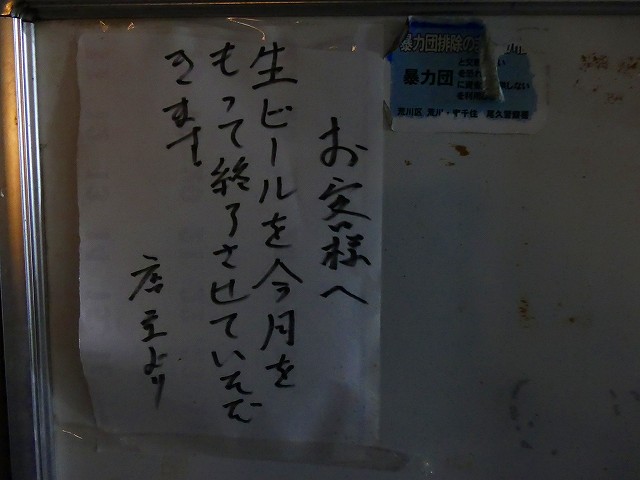 お客様へ
生ビールを今月を
もって終了させていただ
きます
店主より
暴力団排除の
暴力団
荒川区
尾久警察署